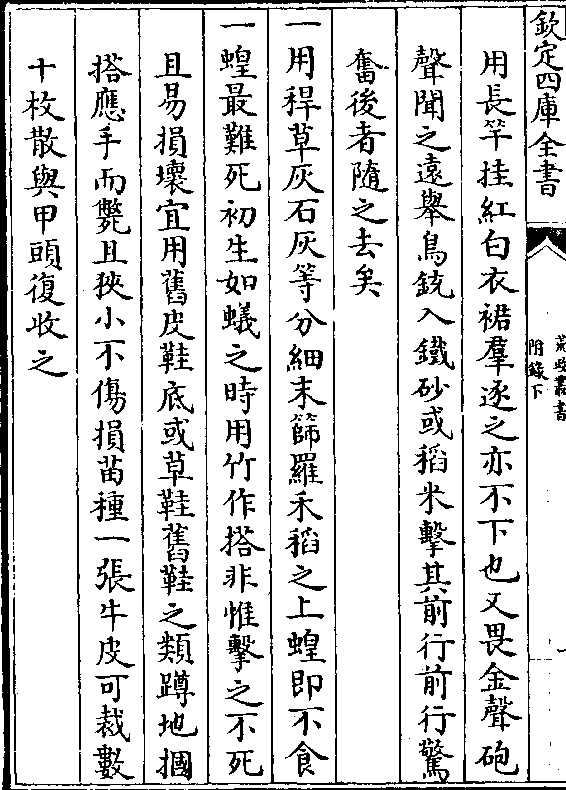 欽定四庫全書
荒政叢書
附錄下
用長竿挂紅白衣裙羣逐之亦不下也又畏金聲砲
聲聞之遠舉鳥銃入鐵砂或稻米擊其前行前行驚
奮後者隨之去矣
一用稈草灰石灰等分細末篩羅禾稻之上蝗即不食
一蝗最難死初生如蟻之時用竹作搭非惟擊之不死
且易損壞宜用舊皮鞋底或草鞋舊鞋之類蹲地摑
搭應手而斃且狹小不傷損苗種一張牛皮可裁數
十枚散與甲頭復收之